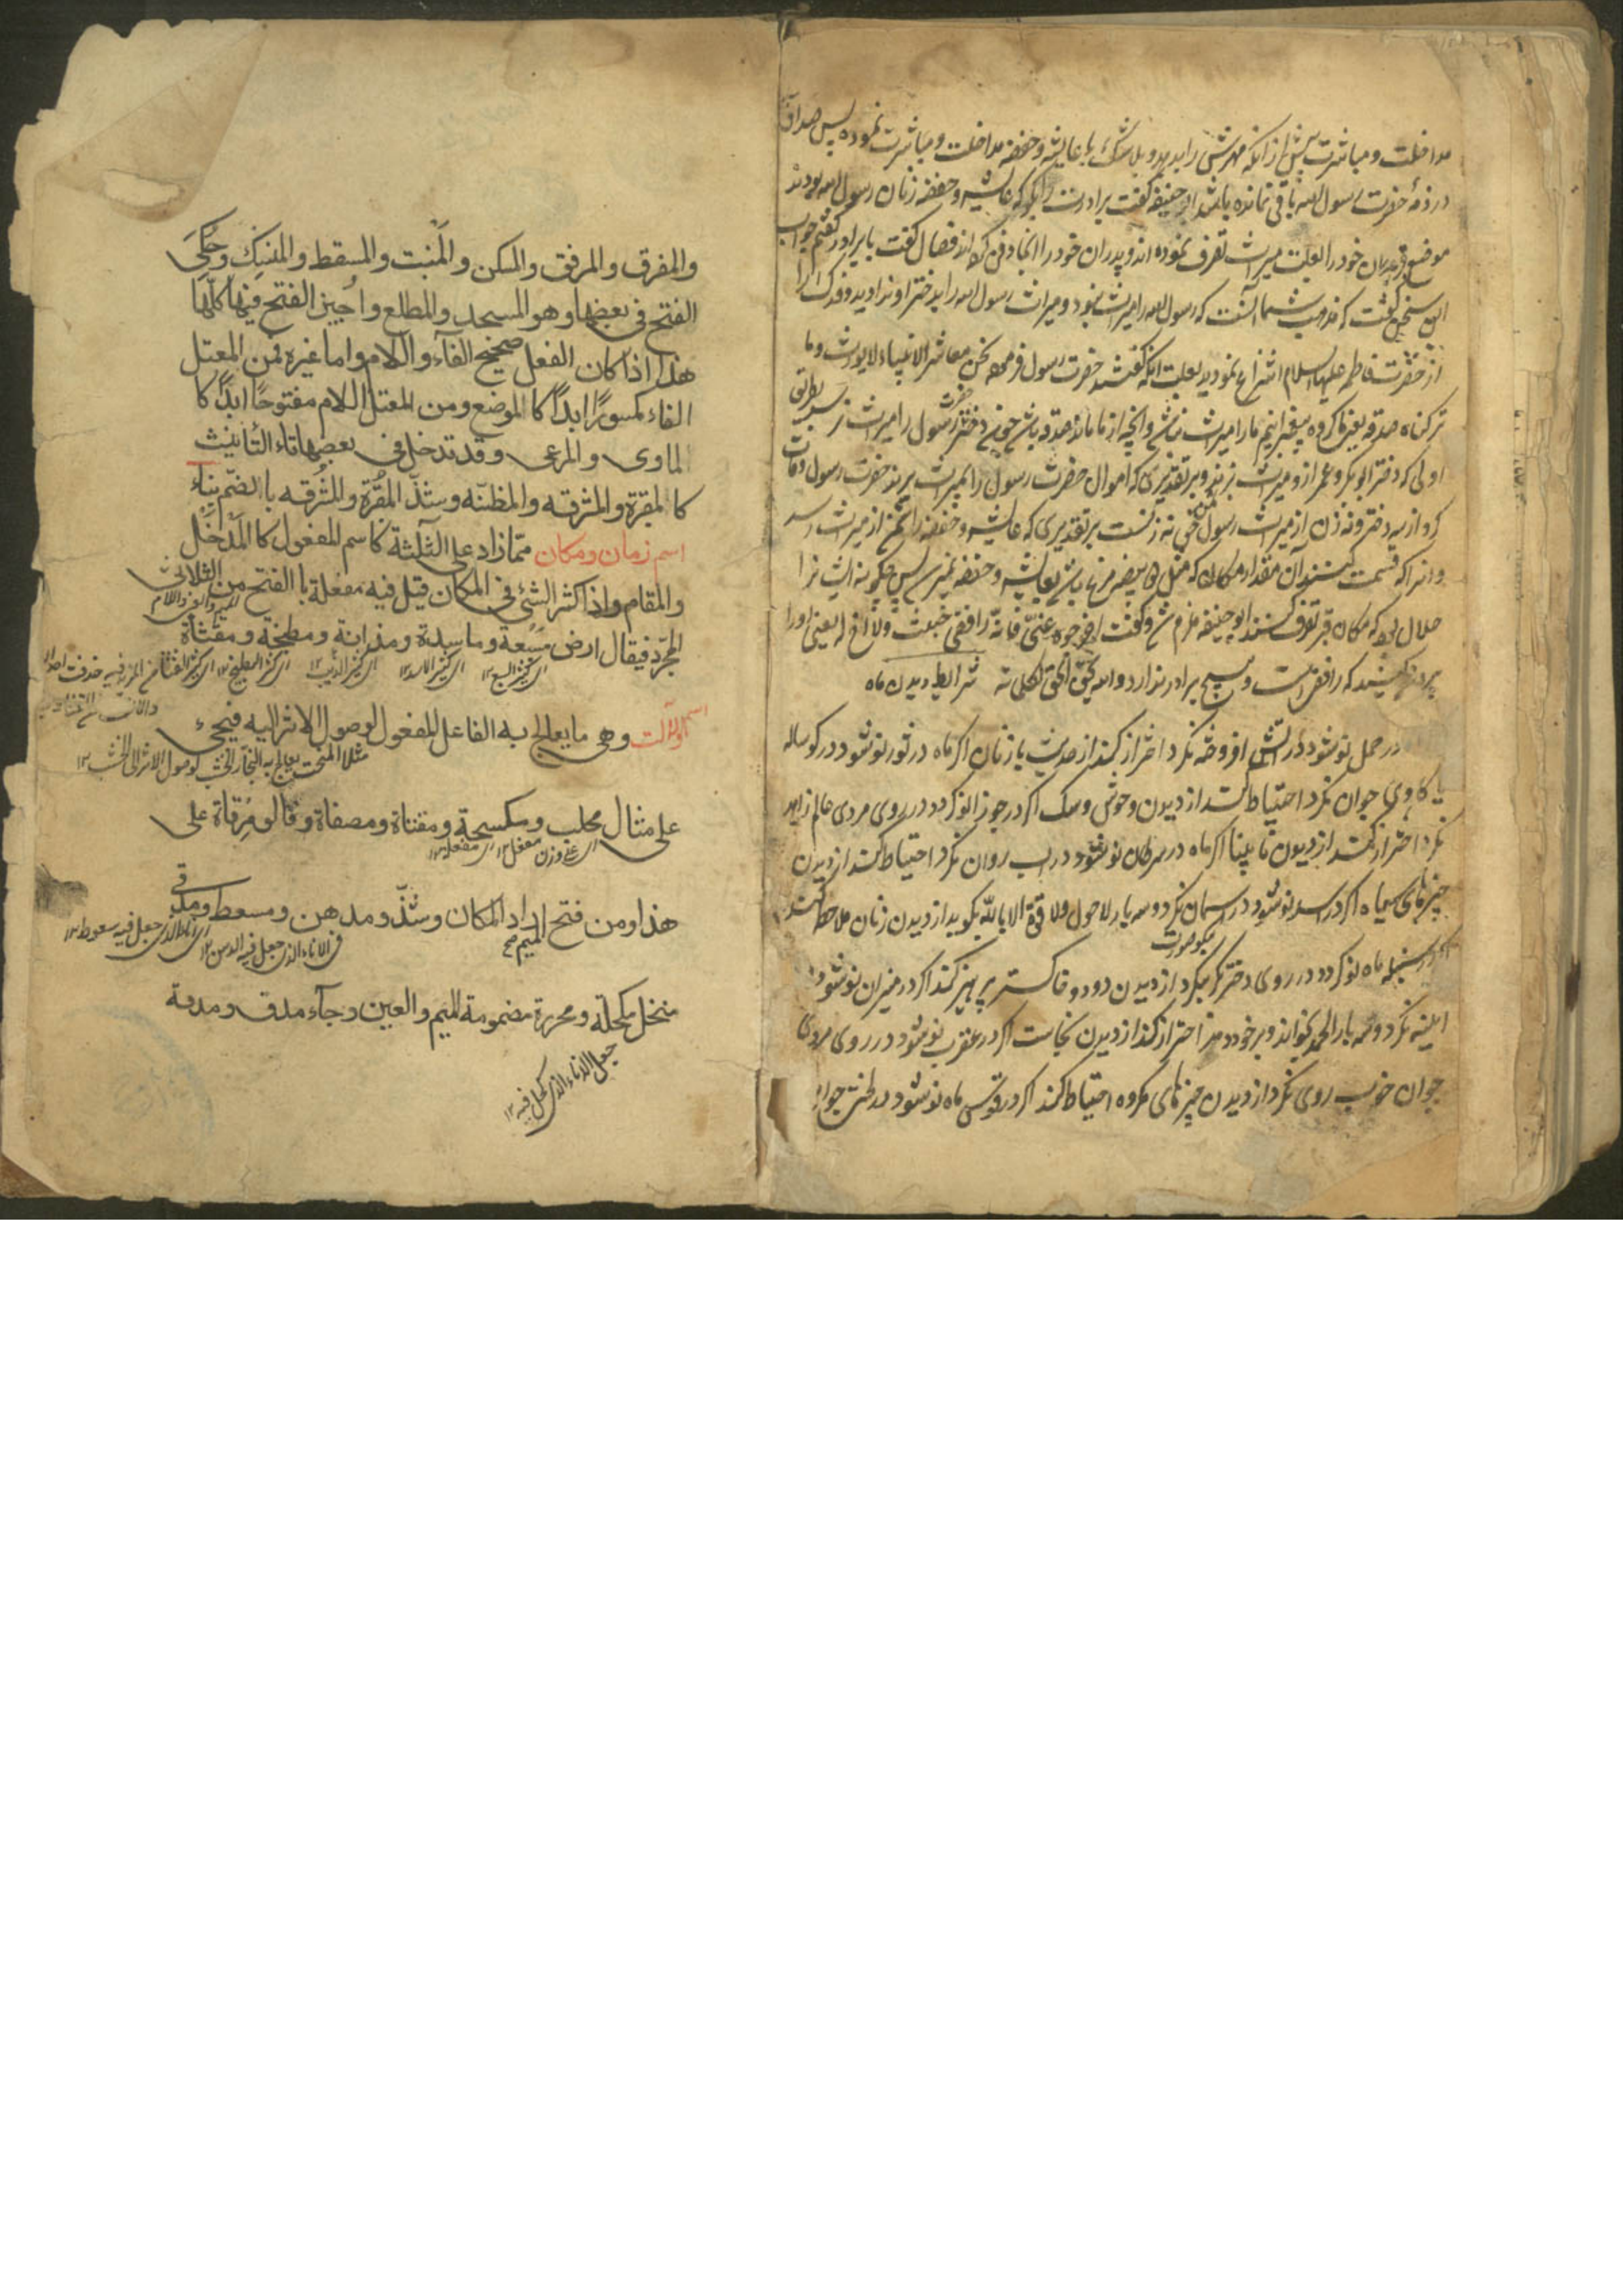 مداخلت و مباشرت پیش از انکه مهرش را بدهد و بلاشک با عایشه و حفصه مداخلت و مباشرت نموده پس صداق
در ذمهٔ حضرت رسول الله باقی نمانده باشد ابو حنیفه گفت برادرت را بگو که عایشه و حفصه زنان رسول الله بودند
موضع قبر پدران خود را بعلت میراث تصرف نموده اند و پدران خود را انجا دفن کرده اند فضال گفت با برادر گفتم جواب
این سخن گفت که مذهب شما آنست که رسول الله را میراث نبود و میراث رسول الله را بدختر او ندادید و فدک را
از حضرت فاطمه علیها السلام انتزاع نمودید بعلت انکه گفتند حضرت رسول فرموده نحن معاشر الانبیاء لا نورث و ما
ترکناه صدقه یعنی ما گروه پیغمبرانیم ما را میراث نباشد و انچه از ما ماند صدقه باشد چون دختر حضرت رسول را میراث نرسد بطریق
اولی که دختر ابوبکر و عمر از و میراث نبرند و بر تقدیری که اموال حضرت رسول را بمیراث برند حضرت رسول وفات
کرد از یه دختر و نه زن از میراث رسول ثمن حق نه زنست بر تقدیری که عایشه و حفصه را تسع از میراث رسد
و انرا که قسمت کنند آن مقدار مکان که مثل بیضه مرغ باشد بعایشه و حفصه نمیرسد پس چگونه ایشانرا
حلال بود که مکان قبر تصرف کنند ابو حنیفه ملزم شد و گفت اخرجوه عنی فانه رافضی خبیث ولا اخ له یعنی او را
بیرون کنید که رافضی است و هیچ برادر ندارد والله یحق الحق بکلماته شرایط دیدن ماه
در حمل نو شود در آتش افروخته نگرد احتراز کند از حدیث با زنان اگر ماه در ثور نو شود در گوساله
یا گاوی جوان نگرد احتیاط کند از دیدن وحوش و سگ اگر در جوزا نو گردد در روی مردی عالم زاهد
نگرد احتراز کند از دیدن نابینا اگر ماه در سرطان نو شود در اب روان نگرد احتیاط کند از دیدن
چیزهای سیاه اگر در اسد نو شود در اسمان نگرد و سه بار لا حول ولا قوة الا بالله بگوید از دیدن زنان ملاحظه کند
اگر در سنبله ماه نو گردد در روی دختر بکر نیکو صورت نگرد از دیدن دود و خاکستر پرهیز کند اگر در میزان نو شود در
ایینه نگرد و سه بار الحمد بخواند و بر خود دمد احتراز کند از دیدن نجاست اگر در عقرب نو شود در روی مردی
جوان خوب روی نگرد از دیدن چیزهای مکروه احتیاط کند اگر در قوس ماه نو شود در
والمفرق والمرفق والمسکن والمنبت والمسقط والمنسک وحکی
الفتح فی بعضها وهو المسجد والمطلع واجیز الفتح فیها کلها
هذا اذا کان الفعل صحیح الفاء واللام واما غیره فمن المعتل
الفاء مکسورا ابدا کا الموضع ومن المعتل اللام مفتوحا ابدا کا
لماوی والمرعی وقد تدخل فی بعضها تاء التأنیث
کا لمقبرة والمشرقه والمظنّه وشذّ المقبُرة والمشرُقه با الضم بناء
اسم زمان ومکان ممّا زاد علی الثلثة کاسم المفعول کا المُدخَل
والمقام واذا کثر الشئ فی المکان قیل فیه مفعلة با الفتح من الثلاثی
المیم والعین واللام
المجرّد فیقال ارض مسبعة وماسدة ومذءبة ومبطخة ومقثأة
ای کثیر السبع ۱۲ ای کثیر الاسد ۱۲ ای کثیر الذئب ۱۲ ای کثیر البطیخ ۱۲ ای کثیر القثاء
اسم الآلت وهی ما یعالج به الفاعل المفعول لوصول الاثر الیه فیجیء
مثلا المنحت یعالج به النجار الخشب لوصول الاثر الی الخشب ۱۲
علی مثال محلب ومکسحة ومفتاة ومصفاة وقالو مِرقاة علی
ای علی وزن مفعل ۱۲ ای مفعلة ۱۲
هذا ومن فتح المیم اراد المکان وشذّ ومدهن ومسعط ومدق
ای الاناء الذی جعل فیه سعوط ۱۲
فی الاناء الذی جعل فیه الدهن ۱۲
منخل مکحلة ومحرزة مضمومة المیم والعین وجاء مدق ومدقة
جعل الاناء الذی کحل فیه ۱۲